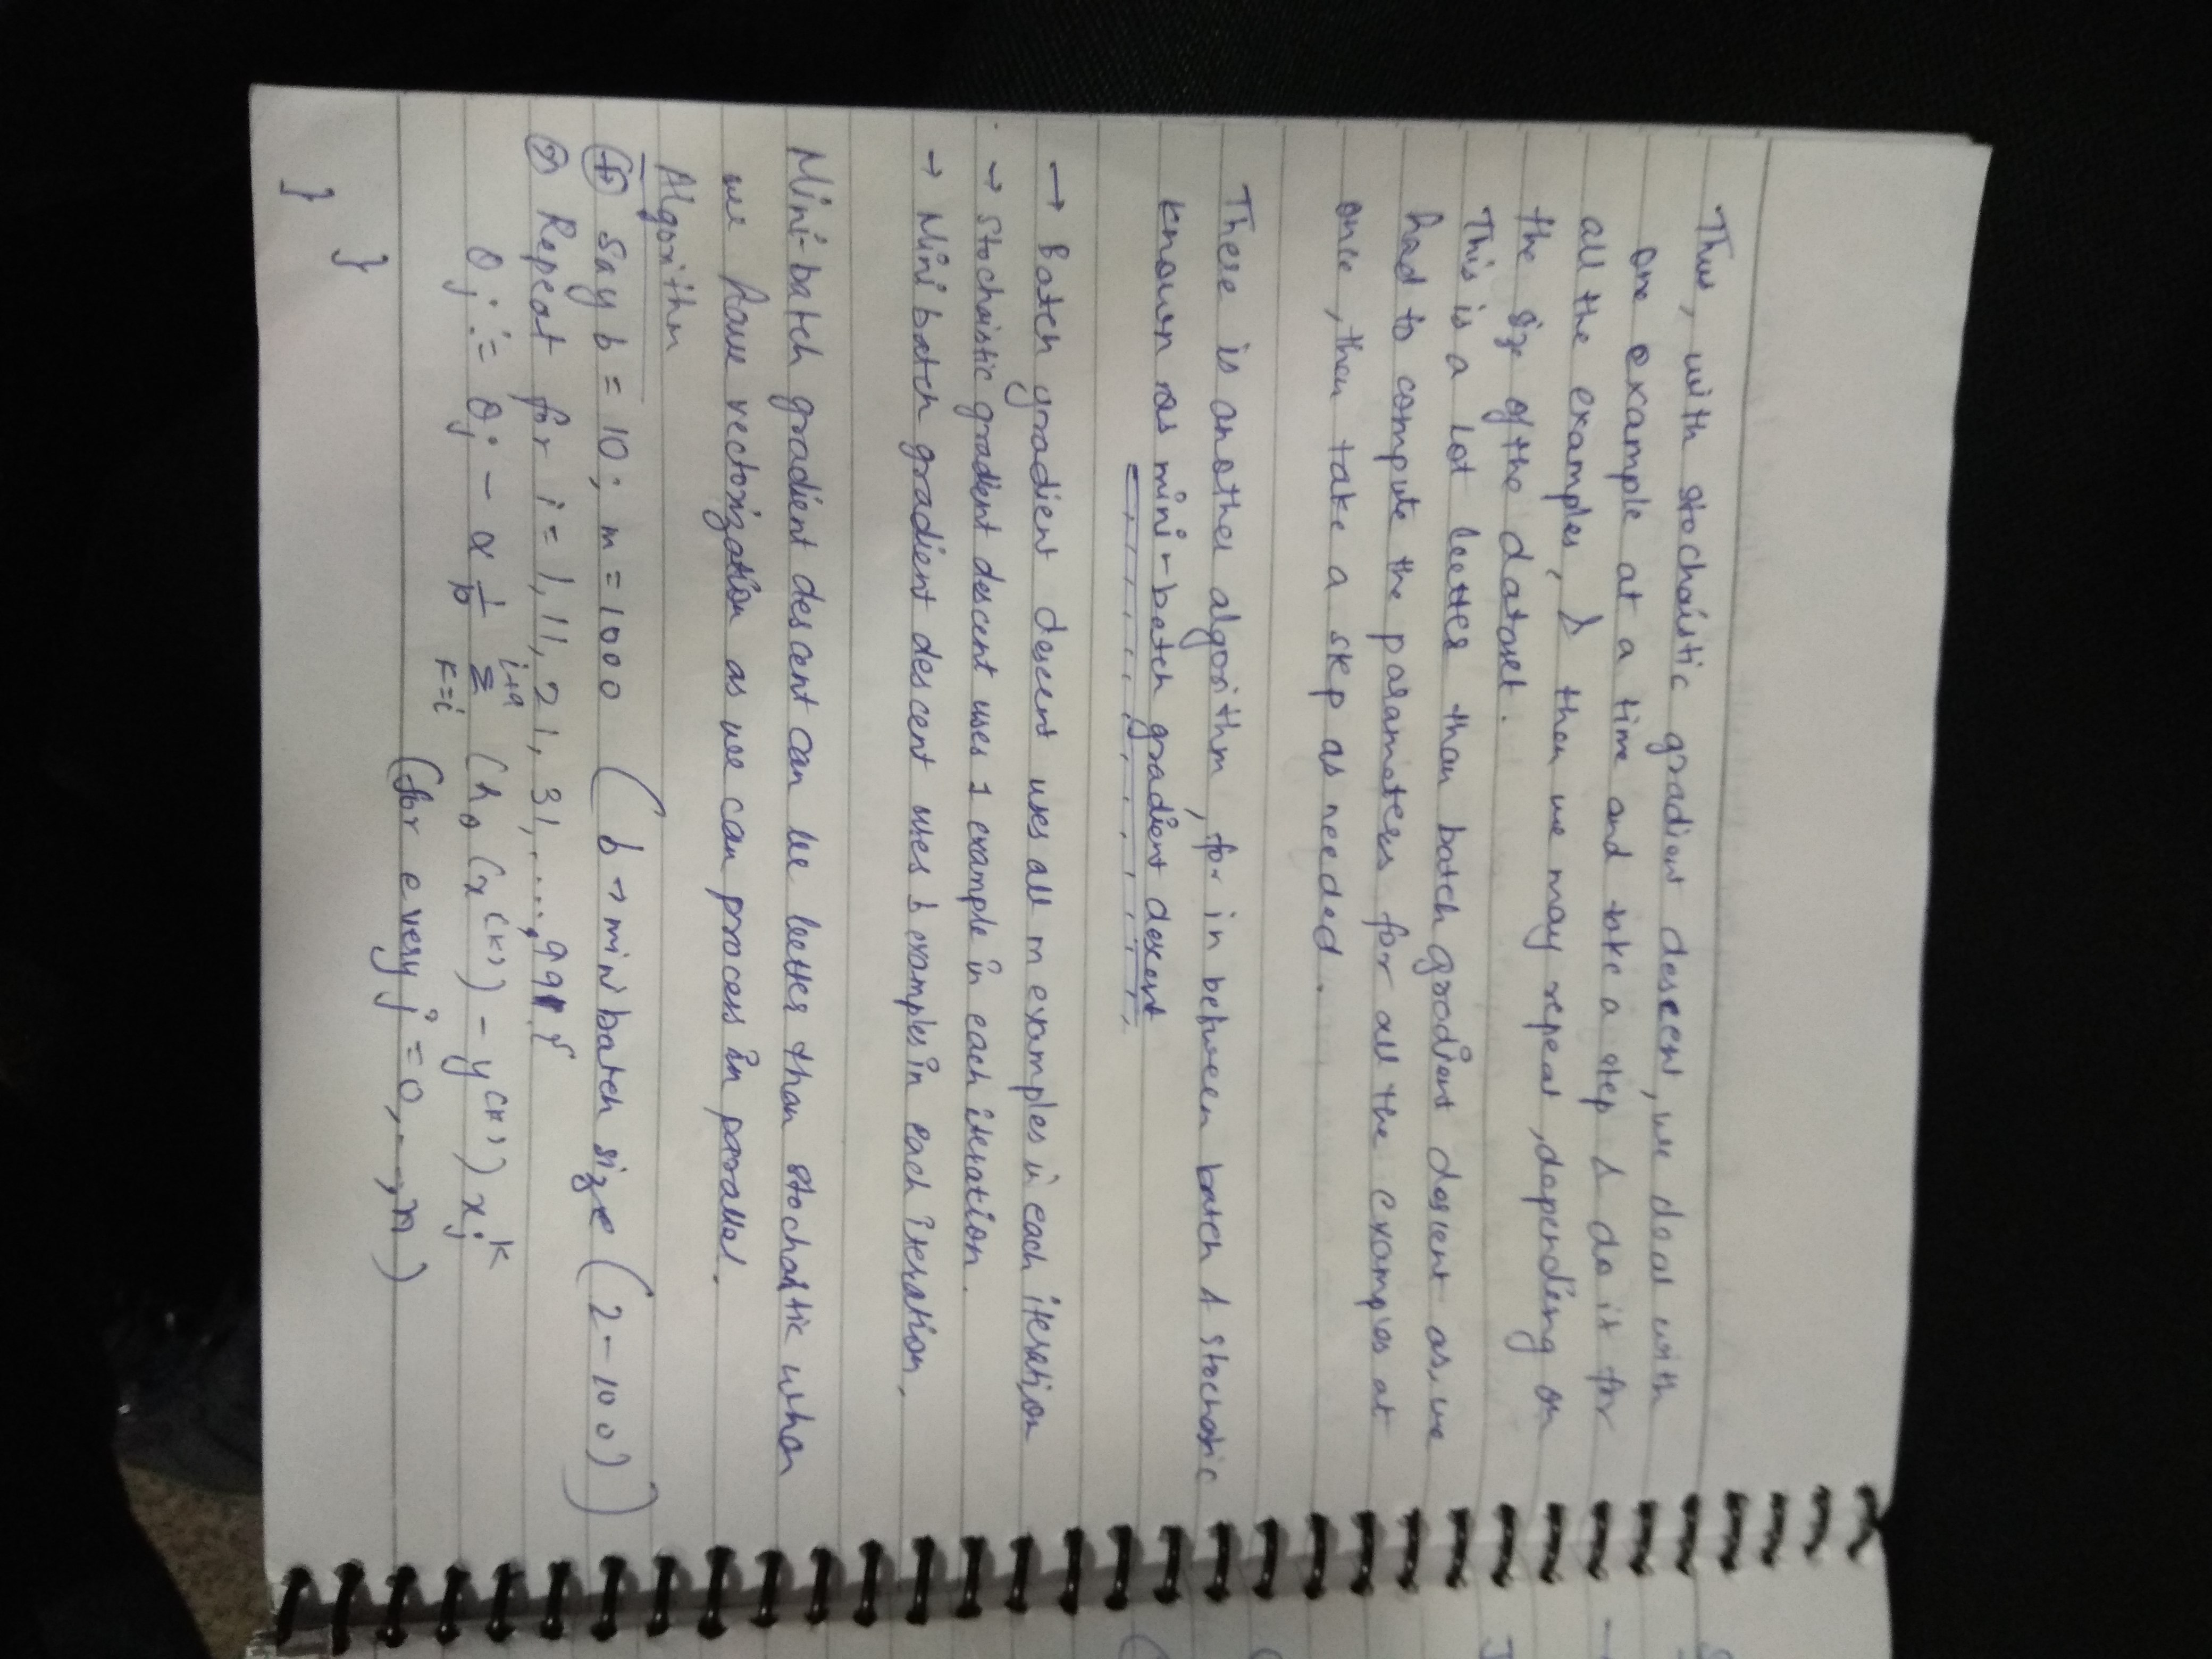 Thus, with stochaistic gradient descent, we deal with
one example at a time and take a step & do it for
all the examples, & then we may repeat, depending on
the size of the dataset.
This is a lot better than batch gradient descent as, we
had to compute the parameters for all the examples at
once, then take a step as needed.
There is another algorithm, for in between batch & stochastic
known as mini-batch gradient descent
→ Batch gradient descent uses all m examples in each iteration
→ Stochaistic gradient descent uses 1 example in each iteration.
→ Mini batch gradient descent uses b examples in each iteration.
Mini-batch gradient descent can be better than stochastic when
we have vectorization as we can process in parallel.
Algorithm
① Say b = 10; m = 1000 (b → mini batch size (2-100))
② Repeat for i = 1, 11, 21, 31, ...., 991 {
θj := θj - α 1/10 Σ k=i i+9 (hθ(x(k)) - y(k)) xj k
(for every j = 0, ..., n)
}
}